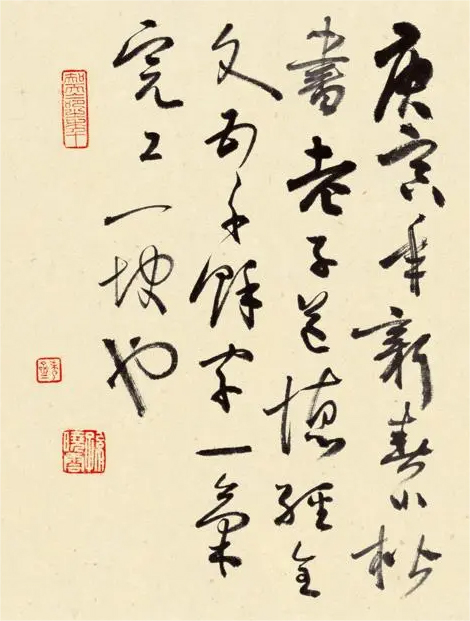 庚寅年新春小楷
書老子道德經全
文五千餘字一氣
完工一坡也